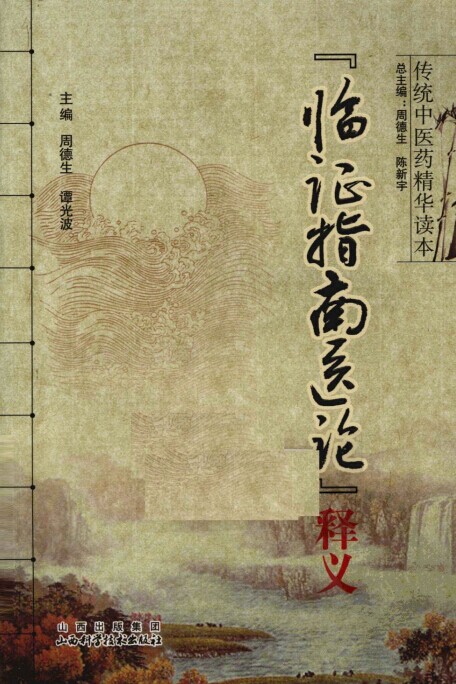 传统中医药精华读本
总主编：周德生 陈新宇
『临证指南医论』释义
主编 周德生 谭光波
山西出版集团
山西科学技术出版社